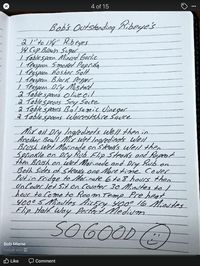 4 of 15
Bob's Outstanding Ribeye's
2 1" to 1¼" Ribeyes
¼ Cup Brown Sugar
1 Tablespoon Minced Garlic
1 Teaspoon Smoked Paprika
1 Teaspoon Kosher Salt
1 Teaspoon Black Pepper
1 Teaspoon Dry Mustard
2 Tablespoons Olive Oil
2 Tablespoons Soy Sauce
2 Tablespoons Balsamic Vinegar
2 Tablespoons Worcestershire Sauce
Mix all Dry Ingredients well then in
Another Bowl Mix wet Ingredients well
Brush Wet Marinade on Steaks well then
Sprinkle on Dry Rub Flip Steaks and Repeat
then Brush on Wet Marinade and Dry Rub on
Both Sides of Steaks one More time. Cover
Put in Fridge to Marinate 6 to 8 hours then
uncover let Sit on Counter 30 Minutes to 1
hour to Come to Room Temp Pre heat
400° 5 Minutes Airfry 400° 16 Minutes
Flip Half Way Perfect Medium
SO GOOD
Bob Miene
Like
Comment